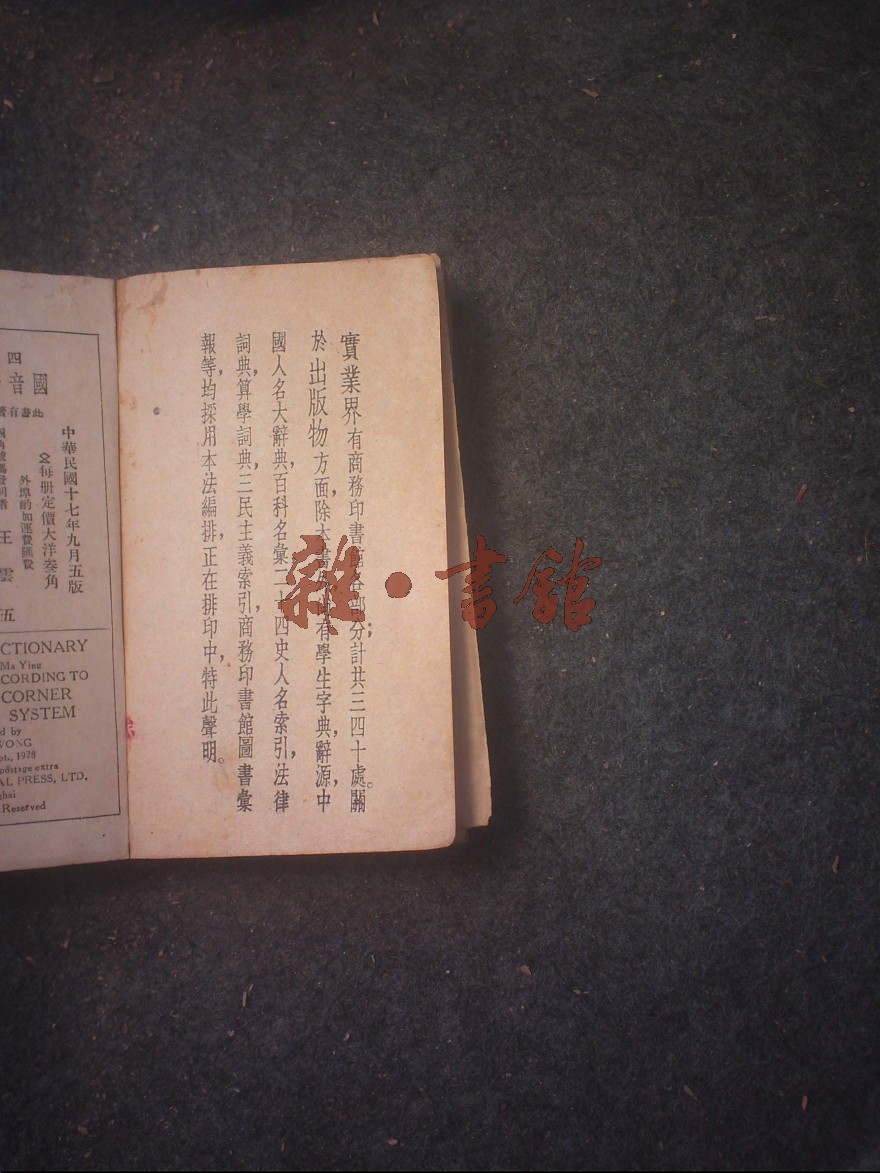 實業界有商務印書館各部分計共三四十處。關
於出版物方面，除本書外，有學生字典，辭源，中
國人名大辭典，百科名彙，二十四史人名索引，法律
詞典，算學詞典，三民主義索引，商務印書館圖書彙
報等，均採用本法編排，正在排印中，特此聲明。
四
國音
此書有著
中華民國十七年九月五版
每册定價大洋叁角
外埠酌加運費匯費
王雲五
CTIONARY
Ma Ying
CORDING TO
CORNER
SYSTEM
d by
WONG
pt., 1928
postage extra
AL PRESS, LTD.
ghai
Reserved
雜·書館